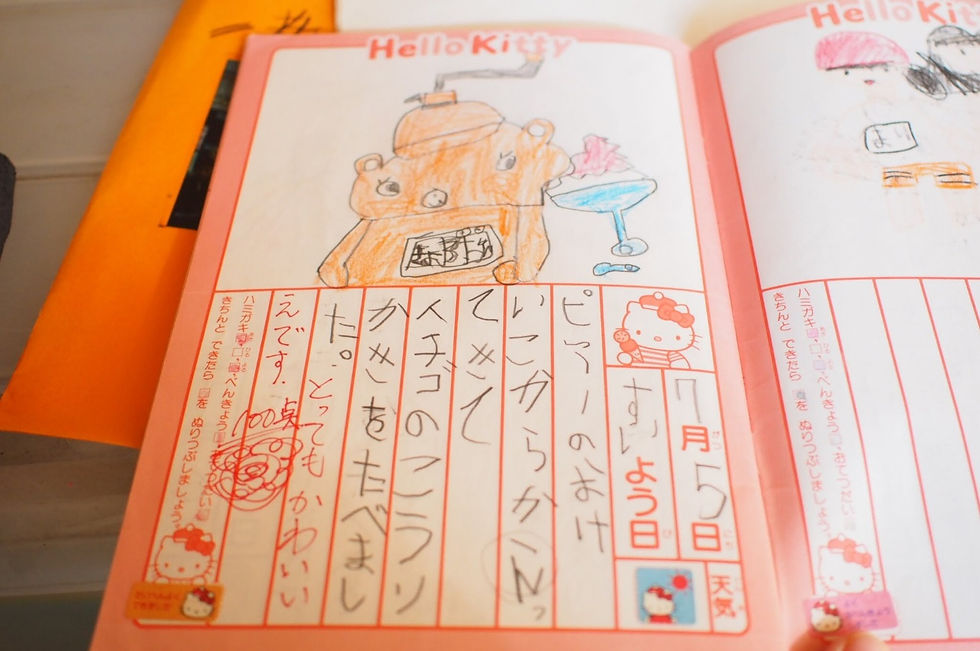 Hello Kitty
7月5日
すいよう日
天気
ピアノのおけ
いこからかえっ
てきて
イチゴのこうり
かきをたべまし
た。とってもかわいい
えです。100点
ハミガキ・・べんきょう・おてつだい
きちんと できたら を ぬりつぶしましょう。
Hello Kit
まり
ハミガキ・・べんきょう・おてつだい
きちんと できたら を ぬりつぶしましょう。